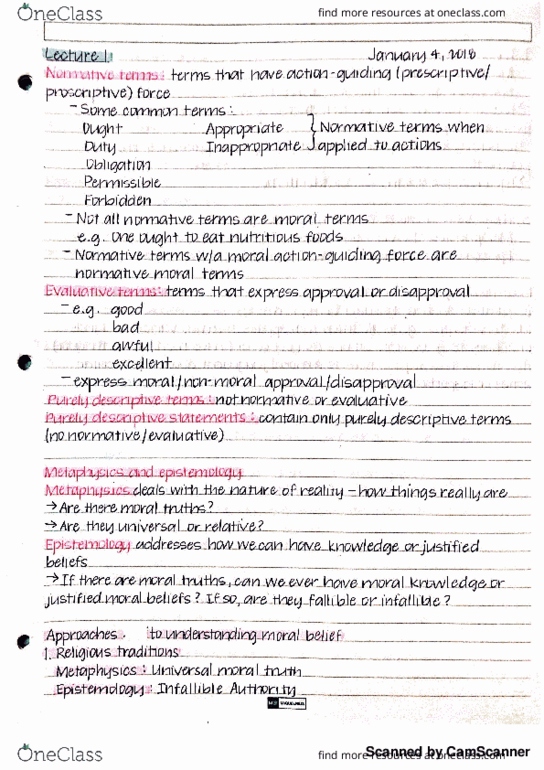 OneClass find more resources at oneclass.com
Lecture 1 January 4, 2018
Normative terms: terms that have action-guiding (prescriptive/
proscriptive) force
- Some common terms:
Ought Appropriate } Normative terms when
Duty Inappropriate applied to actions
Obligation
Permissible
Forbidden
- Not all normative terms are moral terms
e.g. One ought to eat nutritious foods
- Normative terms w/a moral action-guiding force are
normative moral terms
Evaluative terms: terms that express approval or disapproval
- e.g. good
bad
awful
excellent
- express moral/non-moral approval/disapproval
Purely descriptive terms: not normative or evaluative
Purely descriptive statements: contain only purely descriptive terms
(no normative/evaluative)
Metaphysics and epistemology
Metaphysics deals with the nature of reality - how things really are
→ Are there moral truths?
→ Are they universal or relative?
Epistemology addresses how we can have knowledge or justified
beliefs
→ If there are moral truths, can we ever have moral knowledge or
justified moral beliefs? If so, are they fallible or infallible?
Approaches to understanding moral belief
1. Religious traditions
Metaphysics: Universal moral truth
Epistemology: Infallible Authority
OneClass find more resources at oneclass.com
Scanned by CamScanner